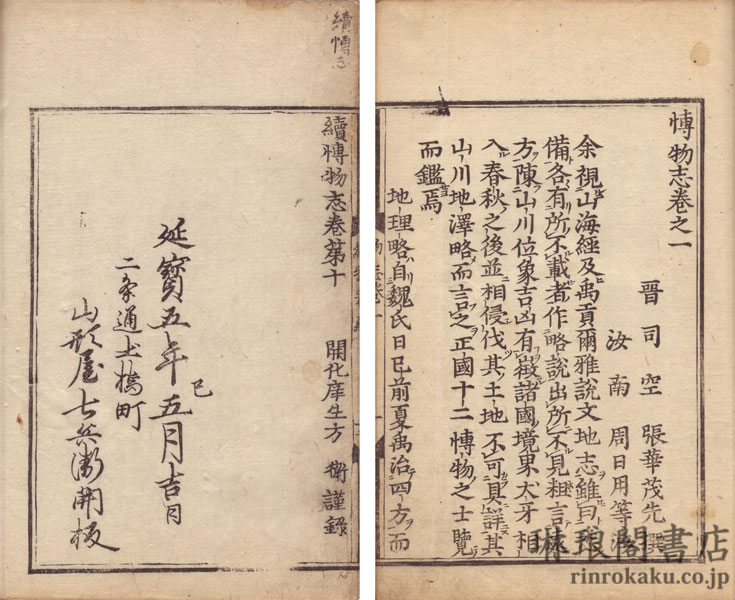 博物志卷之一
晋司空張華茂先撰
汝南周日用等注
余視山海經及禹貢爾雅說文地志雖曰悉
備各有所不載者作略說出所不見粗言遠
方陳山川位象吉凶有徴諸國境界犬牙相
入春秋之後並相侵伐其土地不可具詳其
山川地澤略而言之正國十二博物之士覽
而鑑焉
地理略自魏氏日已前夏禹治四方而
續博志
續博物志卷第十
開化庠生方衛謹錄
延寶五年巳五月吉日
二条通土橋町
山形屋七兵衛開板
琳琅閣書店
rinrokaku.co.jp